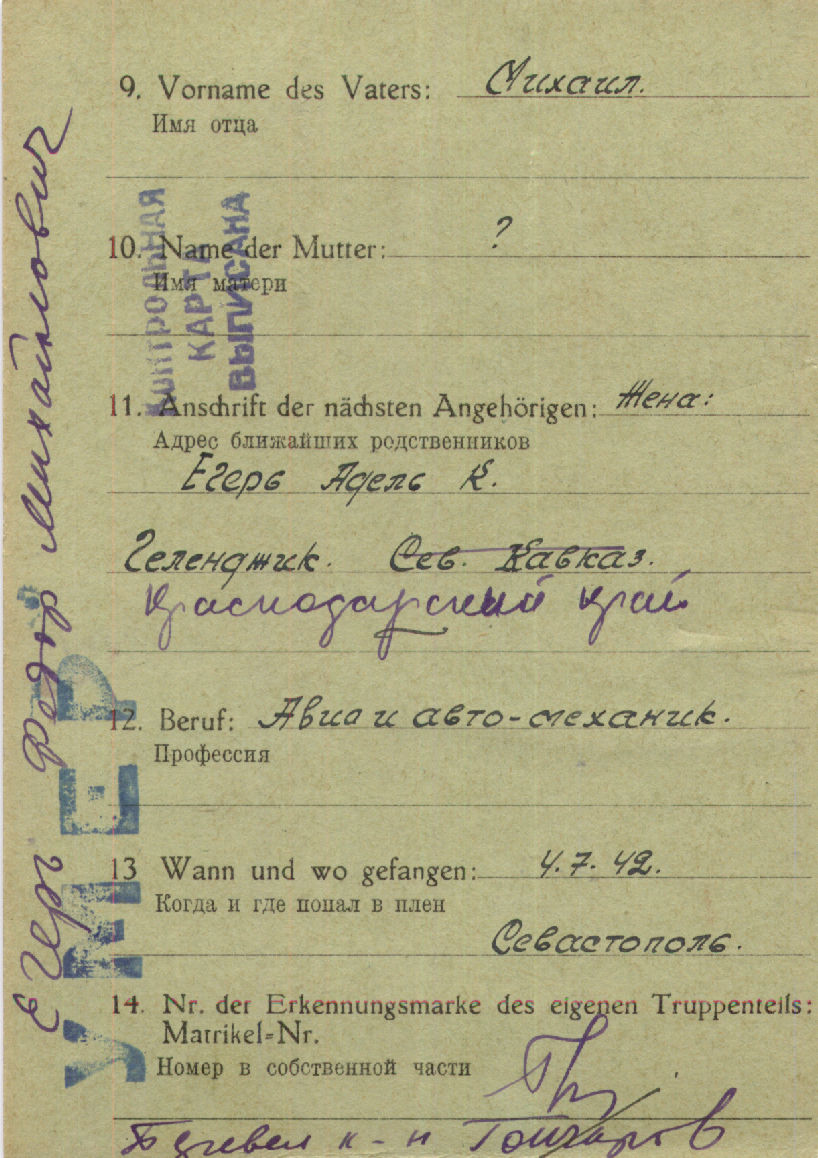 9. Vorname des Vaters: Михаил.
Имя отца
10. Name der Mutter: ?
Имя матери
КОНТРОЛЬНАЯ
КАРТА
ВЫПИСАНА
11. Anschrift der nächsten Angehörigen: Жена:
Адрес ближайших родственников
Егерь Адель К.
Геленджик. Сев. Кавказ.
Краснодарский край
12. Beruf: Авиа и авто-механик.
Профессия
13 Wann und wo gefangen: 4.7.42.
Когда и где попал в плен
Севастополь.
14. Nr. der Erkennungsmarke des eigenen Truppenteils:
Matrikel=Nr.
Номер в собственной части
к-н Гончаров
Егерь Федор Михайлович
УМЕР